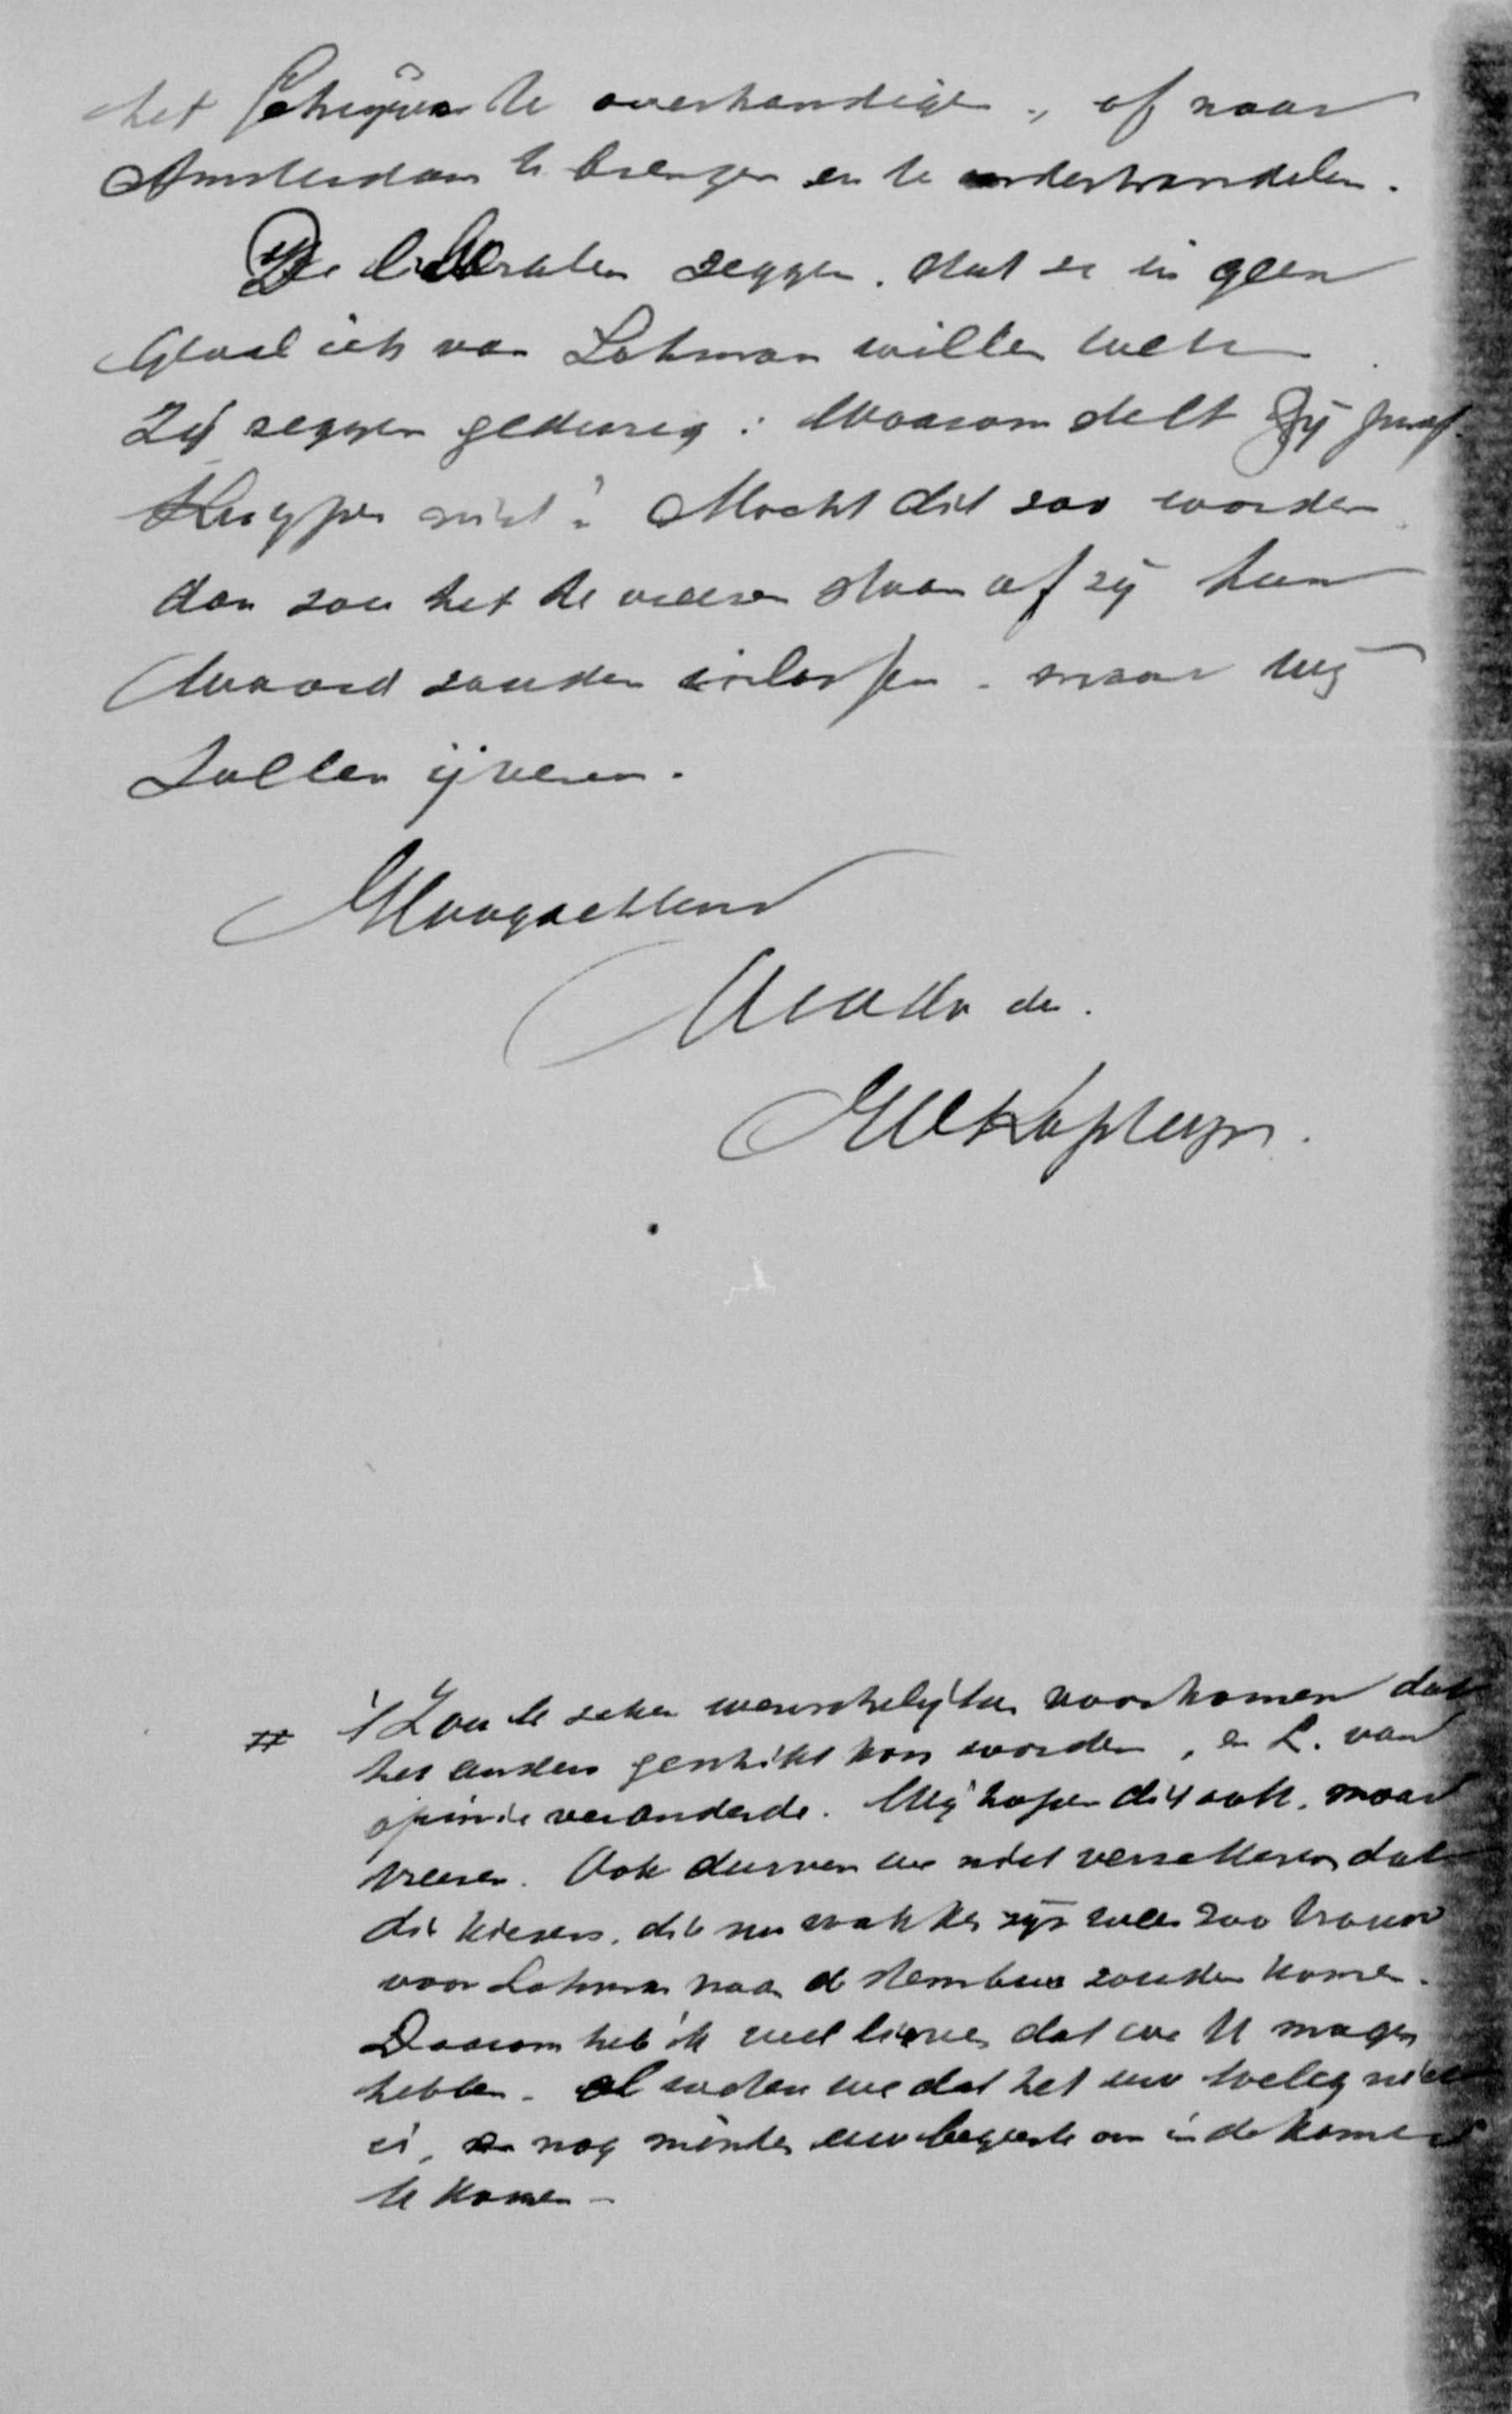 het schrijven te overhandigen, of naar
Amsterdam te brengen en te onderhandelen.
De liberalen zeggen. dat ze in geen
geval iets van Lohman willen weten
Zij zeggen gedurig: Waarom stelt Gij prof.
Kuyper niet? Mocht dit zoo worden
dan zou het te vreezen staan of zij hun
woord zouden inlossen. maar wij
zullen ijveren.
Hoogachtend
Uw dv dr.
Kapteyn.
# 't Zou te zeker wenschelijker voorkomen dat
het anders geschikt kon worden, en L. van
opinie veranderde. Wij hopen dit ook. maar
vreezen. Ook durven we niet verzekeren dat
die kiezers, die nu wakker zijn weer zoo trouw
voor Lohman naar de stembus zouden komen.
Daarom heb ik veel liever dat we U mogen
hebben. al weten we dat het uw weleg niet
is, en nog minder uw begeerte om in de kamer
te komen -